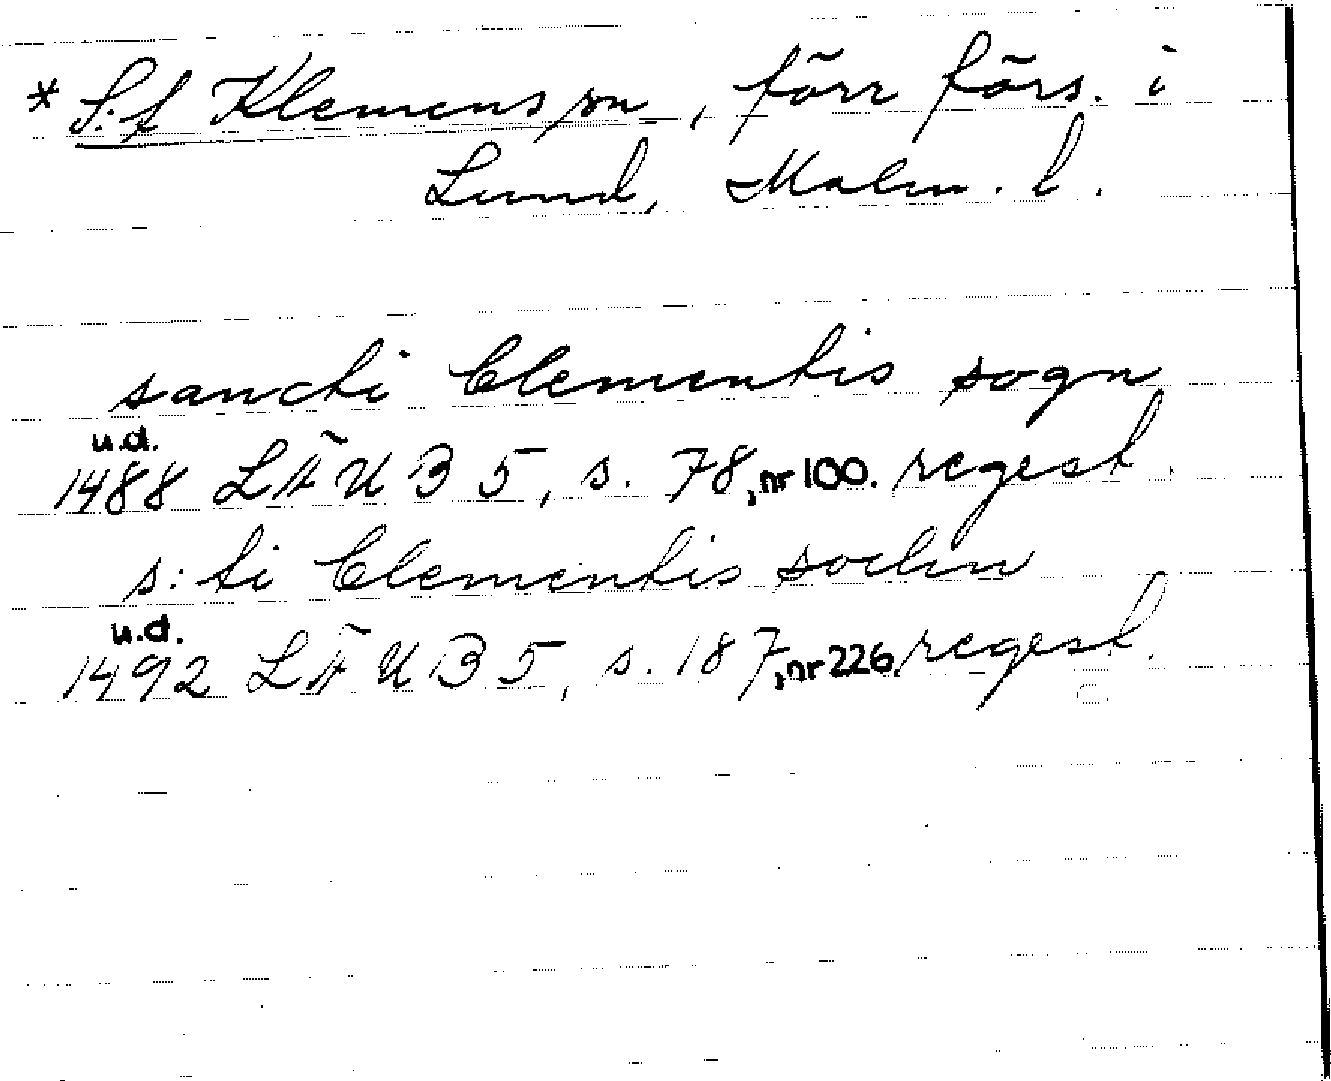 * S:t Klemens sn, förr förs. i
Lund, Malm. l.
sancti Clementis sogn
u.d.
1488 LÄUB 5, s. 78, nr 100. regest.
s:ti Clementis sochn
u.d.
1492 LÄUB 5, s. 187, nr 226 regest.